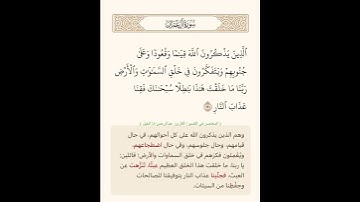 سورة آل عمران
ٱلَّذِينَ يَذۡكُرُونَ ٱللَّهَ قِيَٰمٗا وَقُعُودٗا وَعَلَىٰ
جُنُوبِهِمۡ وَيَتَفَكَّرُونَ فِي خَلۡقِ ٱلسَّمَٰوَٰتِ وَٱلۡأَرۡضِ
رَبَّنَا مَا خَلَقۡتَ هَٰذَا بَٰطِلٗا سُبۡحَٰنَكَ فَقِنَا
عَذَابَ ٱلنَّارِ
المختصر في التفسير
وهم الذين يذكرون الله على كل أحوالهم، في حال
قيامهم، وحال جلوسهم، وفي حال اضطجاعهم،
ويُعْمِلون فكرهم في خلق السماوات والأرض؛ قائلين:
يا ربنا، ما خلقت هذا الخلق العظيم عبثًا، تنزَّهت عن
العبث، فجنِّبنا عذاب النار بتوفيقنا للصالحات
وحفظنا من السيئات.